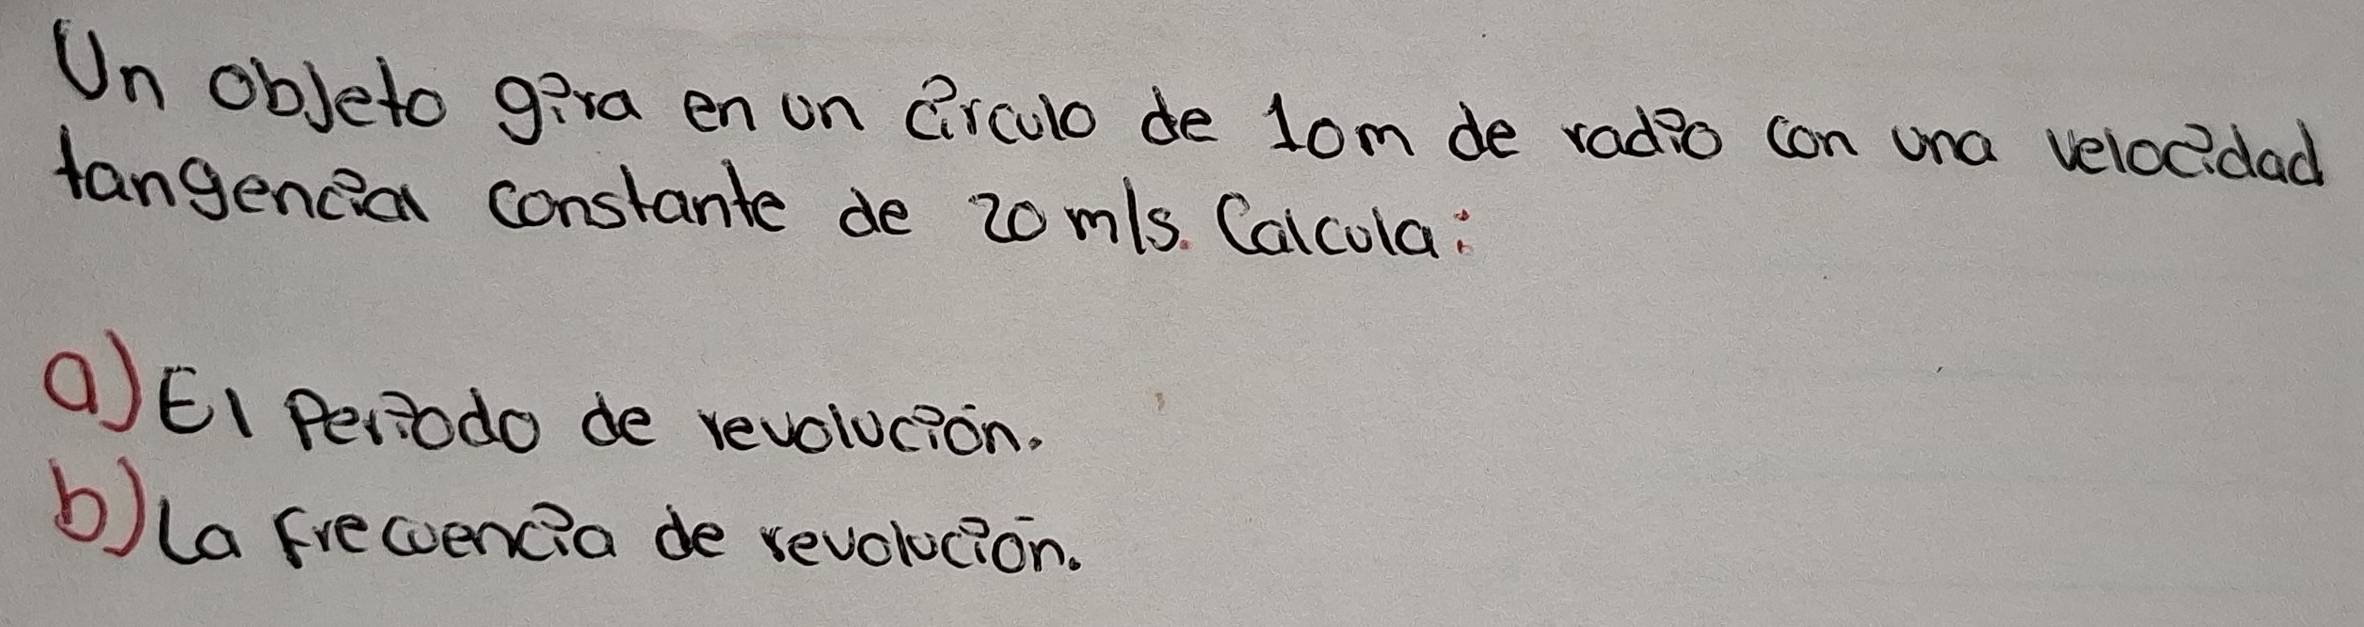 Un objeto gira en un círculo de 10m de radio con una velocidad
tangencial constante de 20 m/s. Calcula:
a) El Periodo de revolución.
b) La frecuencia de revolución.